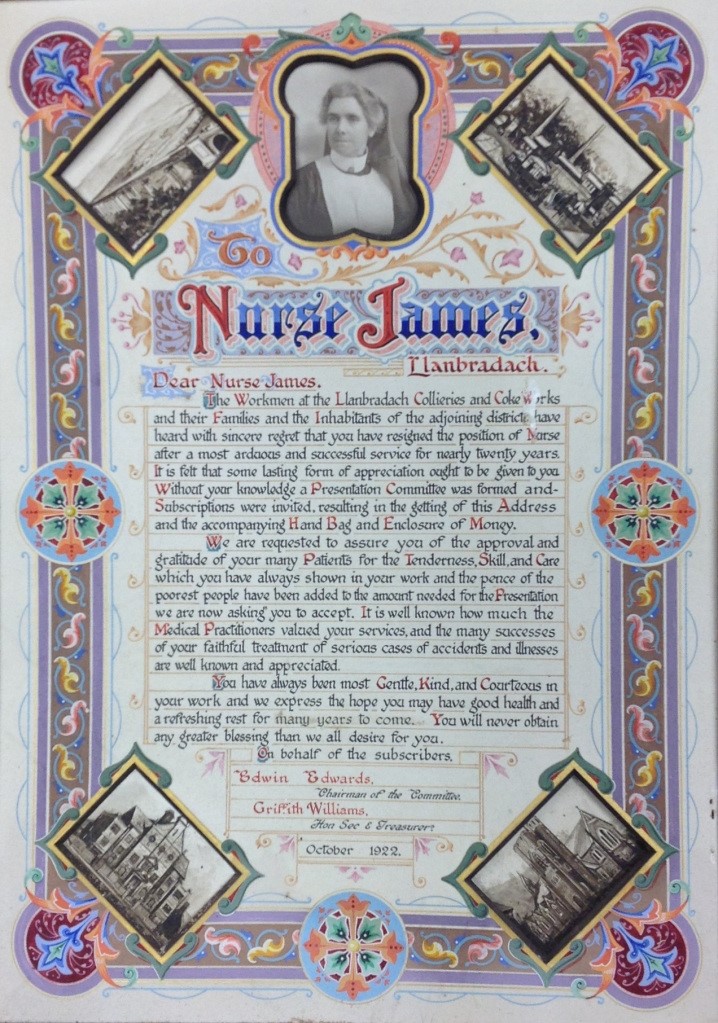 To
Nurse James,
Llanbradach.
Dear Nurse James.
The Workmen at the Llanbradach Collieries and Coke Works
and their Families and the Inhabitants of the adjoining districts have
heard with sincere regret that you have resigned the position of Nurse
after a most arduous and successful service for nearly twenty years.
It is felt that some lasting form of appreciation ought to be given to you
Without your knowledge a Presentation Committee was formed and-
Subscriptions were invited, resulting in the getting of this Address
and the accompanying Hand Bag and Enclosure of Money.
We are requested to assure you of the approval and
gratitude of your many Patients for the Tenderness, Skill, and Care
which you have always shown in your work and the pence of the
poorest people have been added to the amount needed for the Presentation
we are now asking you to accept. It is well known how much the
Medical Practitioners valued your services, and the many successes
of your faithful treatment of serious cases of accidents and illnesses
are well known and appreciated.
You have always been most Gentle, Kind, and Courteous in
your work and we express the hope you may have good health and
a refreshing rest for many years to come. You will never obtain
any greater blessing than we all desire for you.
On behalf of the subscribers,
Edwin Edwards,
Chairman of the Committee.
Griffith Williams,
Hon Sec & Treasurer.
October 1922.